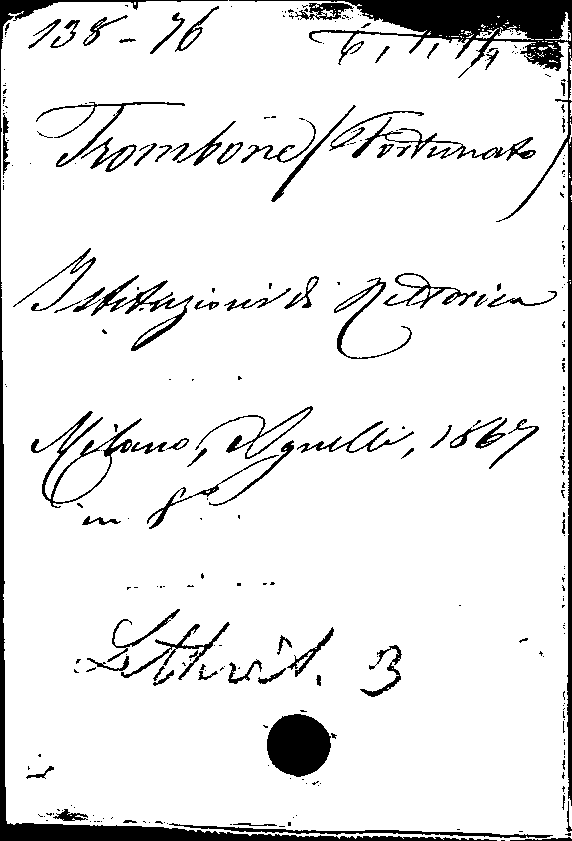 138-76
Trombone (Fortunato)
Istituzioni di Rettorica
Milano, Agnelli, 1867
in 8°
Letterat. 3